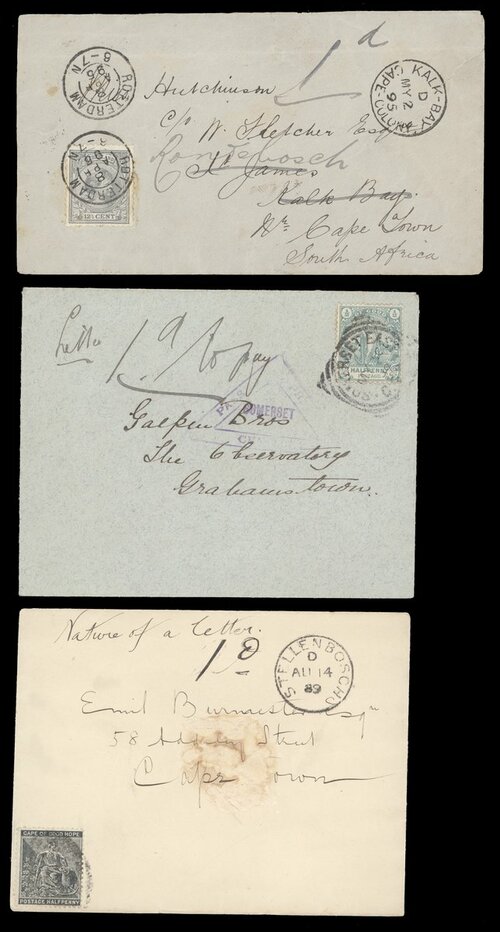 ROTTERDAM
6-7N
95
1d
KALK-BAY
D
MY 2
95
CAPE-COLONY
Hutchinson
c/o W. Fletcher Esq
Rondebosch
St James
Kalk Bay
Nr. Cape Town
South Africa
ROTTERDAM
6-7N
12½ CENT
Letter
1d to pay
HALFPENNY
POSTAGE
SOMERSET
Galpin Bros
The Observatory
Grahamstown.
Nature of a letter.
1D
STELLENBOSCH
D
AU 14
89
Emil Burmester Esqre
58 Adderley Street
Cape Town
CAPE OF GOOD HOPE
POSTAGE HALFPENNY